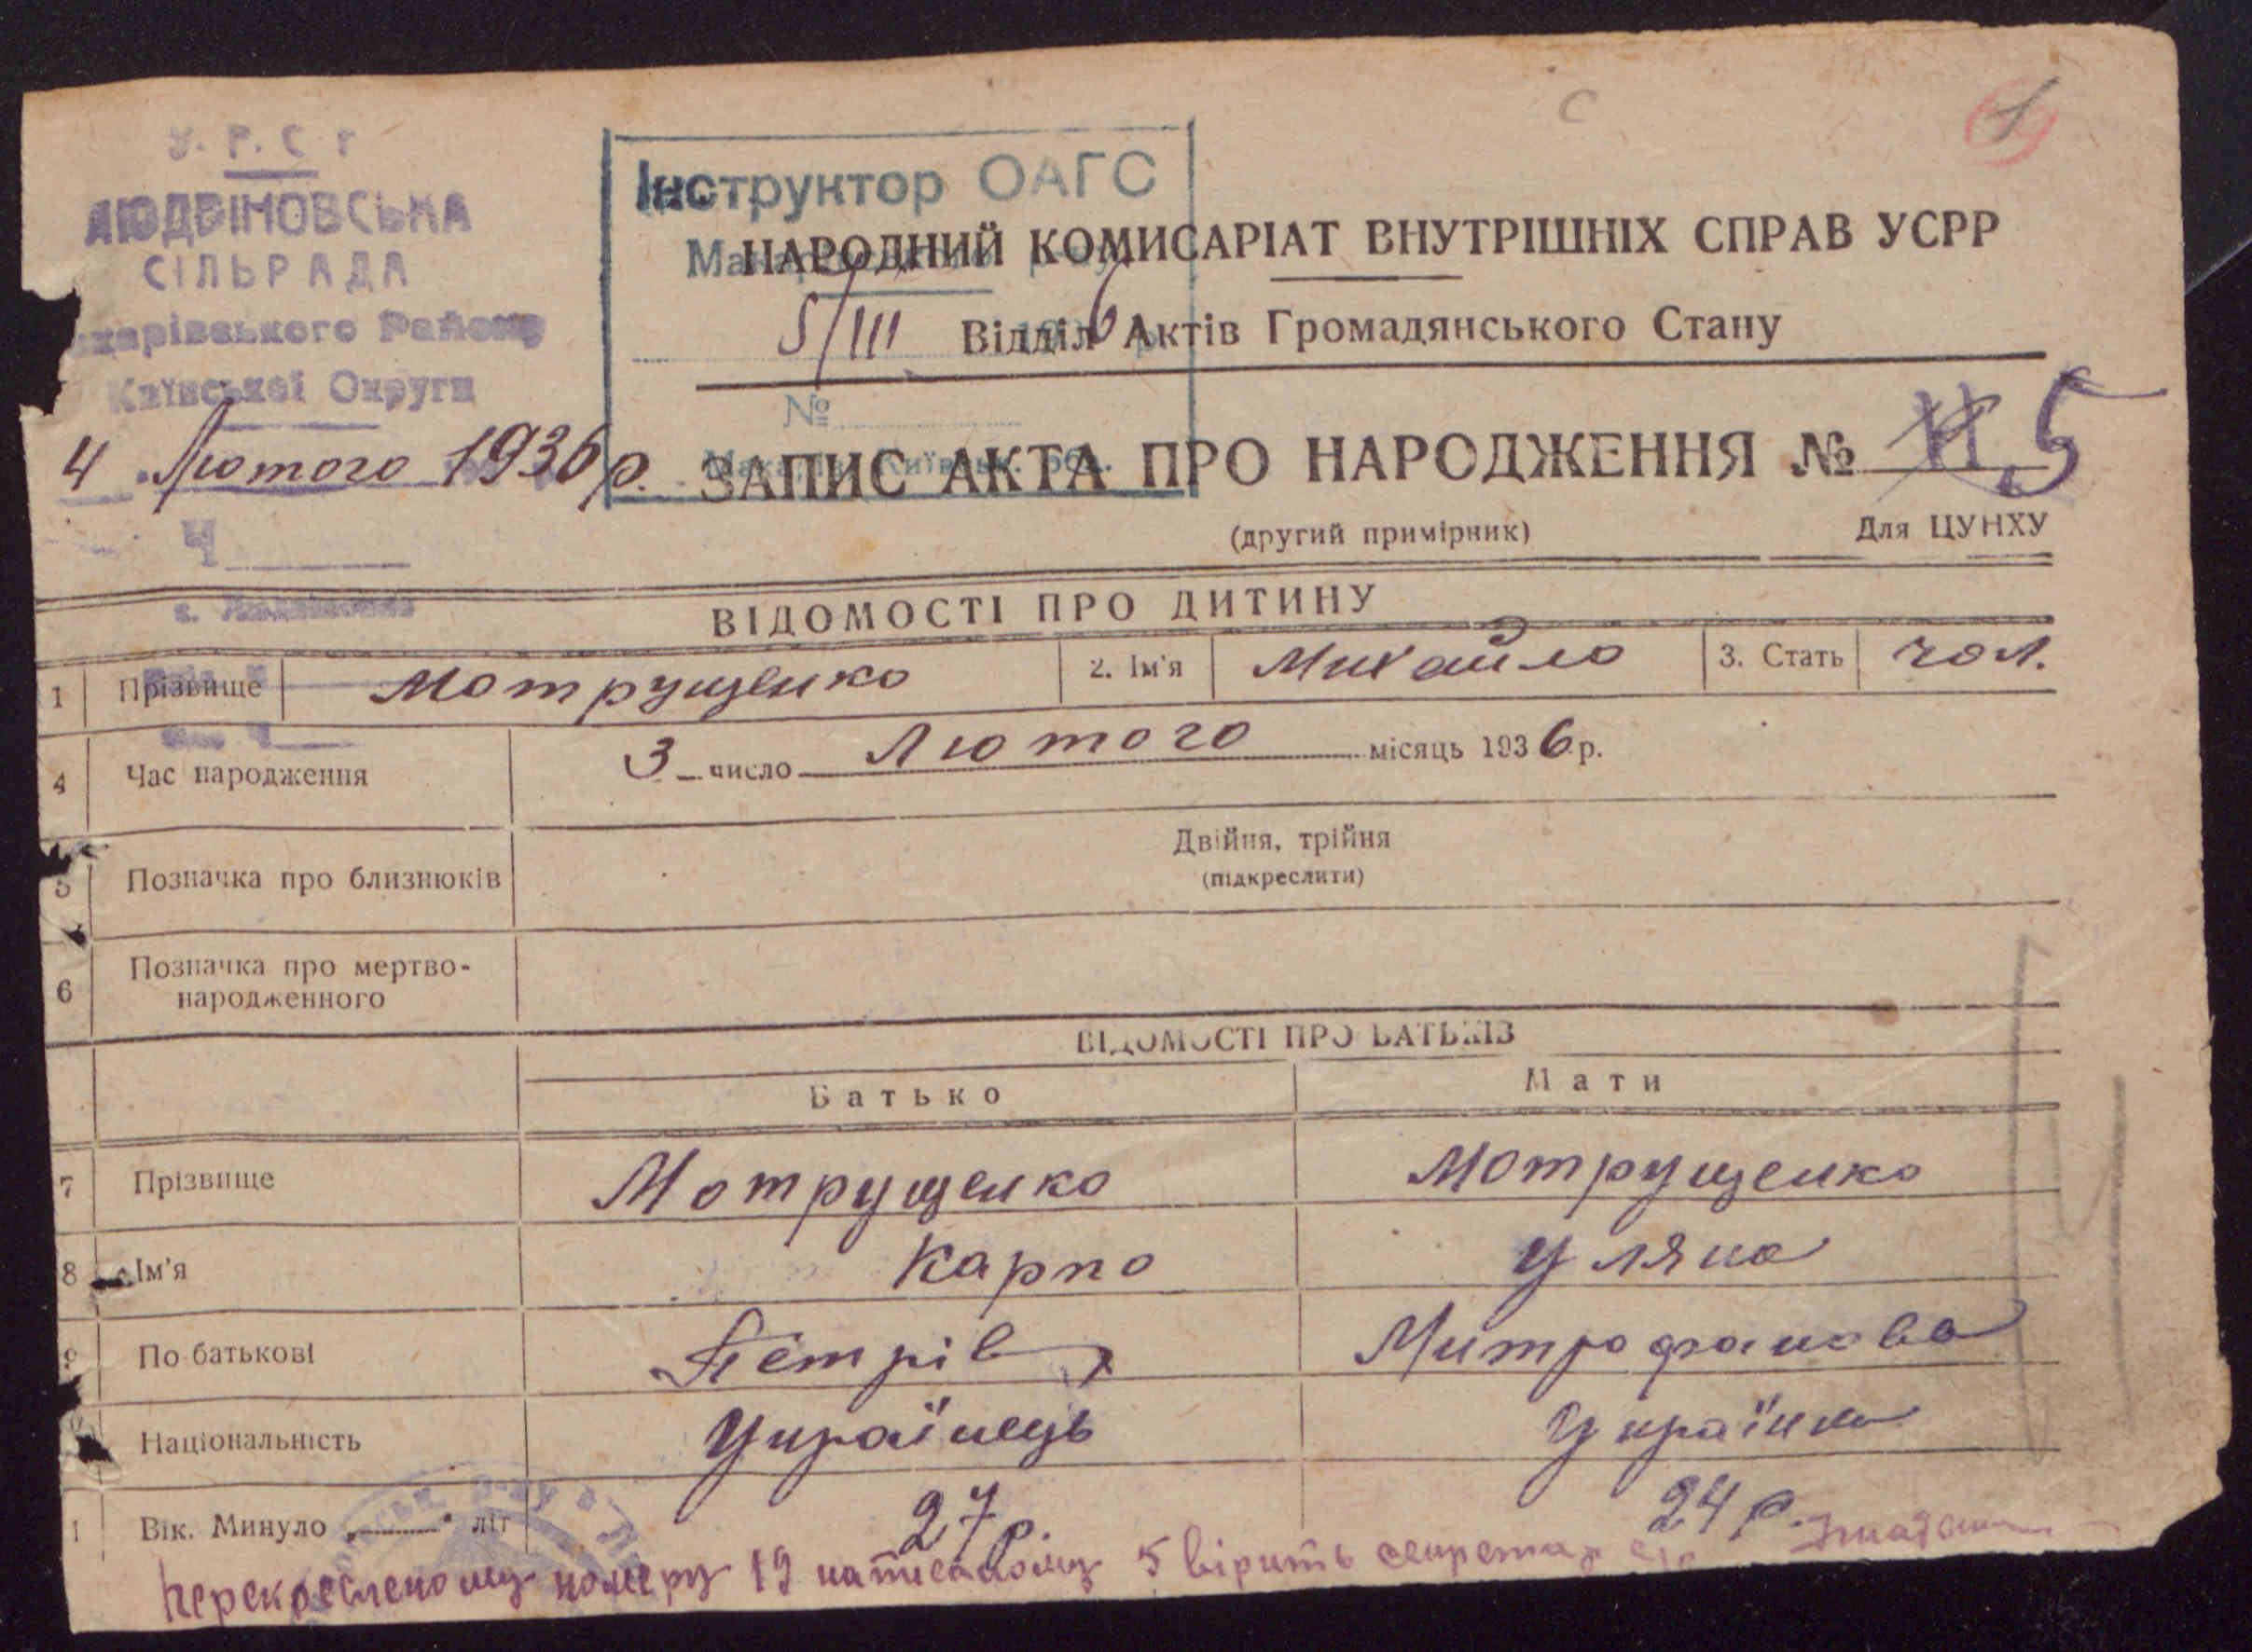 У. Р. С. Р
ЛЮДВІНОВСЬКА
СІЛЬРАДА
Макарівського Району
Київської Округи
4 Лютого 1936 р.
Ч
с. Людвиновка
Інструктор ОАГС
Макарівського р-ну
5/III 1936
№
Макарів, Київськ. обл.
НАРОДНИЙ КОМИСАРІАТ ВНУТРІШНІХ СПРАВ УСРР
Відділ Актів Громадянського Стану
ЗАПИС АКТА ПРО НАРОДЖЕННЯ № 5
(другий примірник)
Для ЦУНХУ
ВІДОМОСТІ ПРО ДИТИНУ
1 Прізвище Мотрущенко 2. Ім'я Михайло 3. Стать чол.
4 Час народження 3 число Лютого місяць 1936 р.
5 Позначка про близнюків Двійня, трійня
(підкреслити)
6 Позначка про мертво-
народженного
ВІДОМОСТІ ПРО БАТЬКІВ
Батько Мати
7 Прізвище Мотрущенко Мотрущенко
8 Ім'я Карпо Уляна
9 По батькові Петрів Митрофанова
Національність Українець Українка
1 Вік. Минуло „ “ літ 27 р. 24 р.
Перекресленому номеру 19 написаному 5 вірить секретар с/р